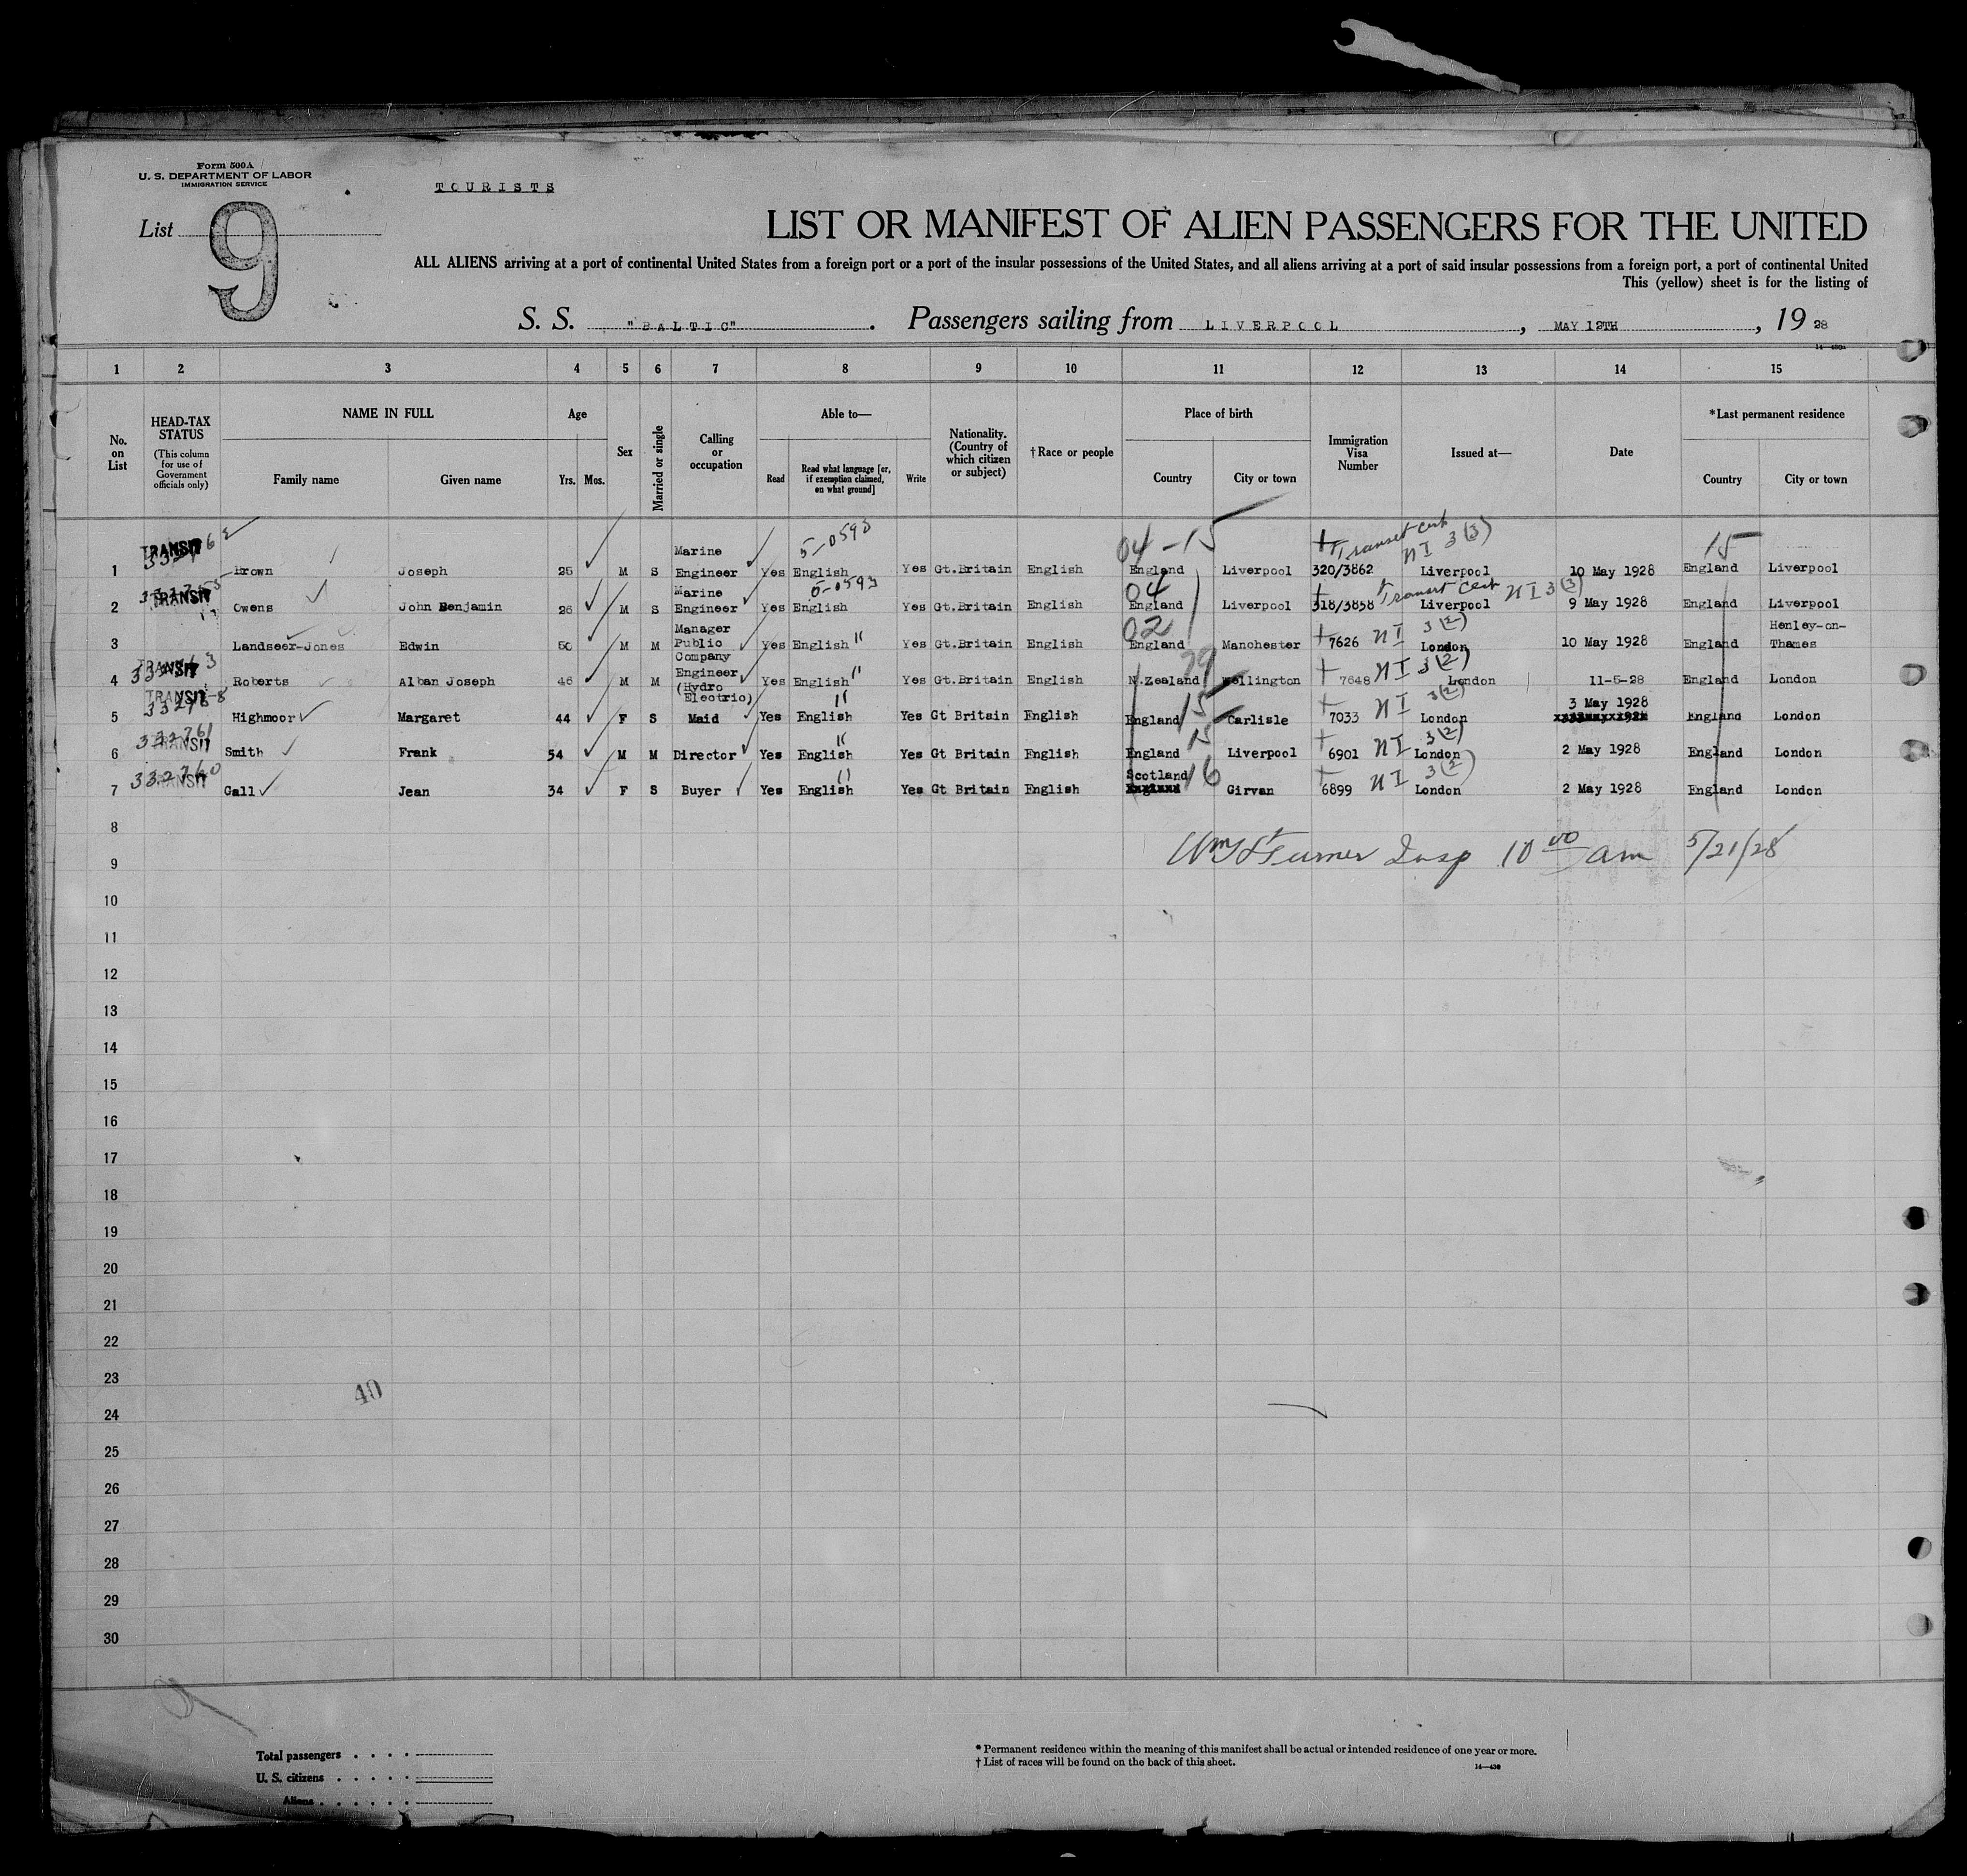 Form 500A
U. S. DEPARTMENT OF LABOR
IMMIGRATION SERVICE
TOURISTS
List 9
LIST OR MANIFEST OF ALIEN PASSENGERS FOR THE UNITED
ALL ALIENS arriving at a port of continental United States from a foreign port or a port of the insular possessions of the United States, and all aliens arriving at a port of said insular possessions from a foreign port, a port of continental United
This (yellow) sheet is for the listing of
S. S. "BALTIC". Passengers sailing from LIVERPOOL, MAY 12TH, 19 28
1 2 3 4 5 6 7 8 9 10 11 12 13 14 15
No. on List
HEAD-TAX STATUS (This column for use of Government officials only)
NAME IN FULL
Family name Given name
Age
Yrs. Mos.
Sex
Married or single
Calling or occupation
Able to—
Read Read what language [or, if exemption claimed, on what ground] Write
Nationality. (Country of which citizen or subject)
†Race or people
Place of birth
Country City or town
Immigration Visa Number
Issued at—
Date
*Last permanent residence
Country City or town
5-0593 04-15 Transit Cert NI 3(3) 15
1 TRANSIT Brown Joseph M S Marine Engineer Yes English Yes Gt.Britain English England Liverpool 320/3862 Liverpool 10 May 1928 England Liverpool
5-0593 04 Transit Cert NI 3(3)
2 TRANSIT Owens John Benjamin 26 M S Marine Engineer Yes English Yes Gt.Britain English England Liverpool 318/3858 Liverpool 9 May 1928 England Liverpool
3 Landseer-Jones Edwin M M Manager Public Company Yes English " Yes Gt.Britain English 02 England Manchester 7626 NI 3(2) London 10 May 1928 England Henley-on-Thames
4 TRANSIT Roberts Alban Joseph 46 M M Engineer (Hydro Electric) Yes English " Yes Gt.Britain English N.Zealand 29 Wellington 7648 NI 3(2) London 11-5-28 England London
5 TRANSIT Highmoor Margaret 44 F S Maid Yes English " Yes Gt Britain English England 15 Carlisle 7033 NI 3(2) London 3 May 1928 England London
6 332761 TRANSIT Smith Frank 54 M M Director Yes English " Yes Gt Britain English England 15 Liverpool 6901 NI 3(2) London 2 May 1928 England London
7 332760 TRANSIT Gall Jean 34 F S Buyer Yes English " Yes Gt Britain English Scotland 16 Girvan 6899 NI 3(2) London 2 May 1928 England London
8
Turner Insp 10 00 am 5/21/28
9
10
11
12
13
14
15
16
17
18
19
20
21
22
23
40
24
25
26
27
28
29
30
Total passengers
U. S. citizens
Aliens
* Permanent residence within the meaning of this manifest shall be actual or intended residence of one year or more.
† List of races will be found on the back of this sheet.
14—430